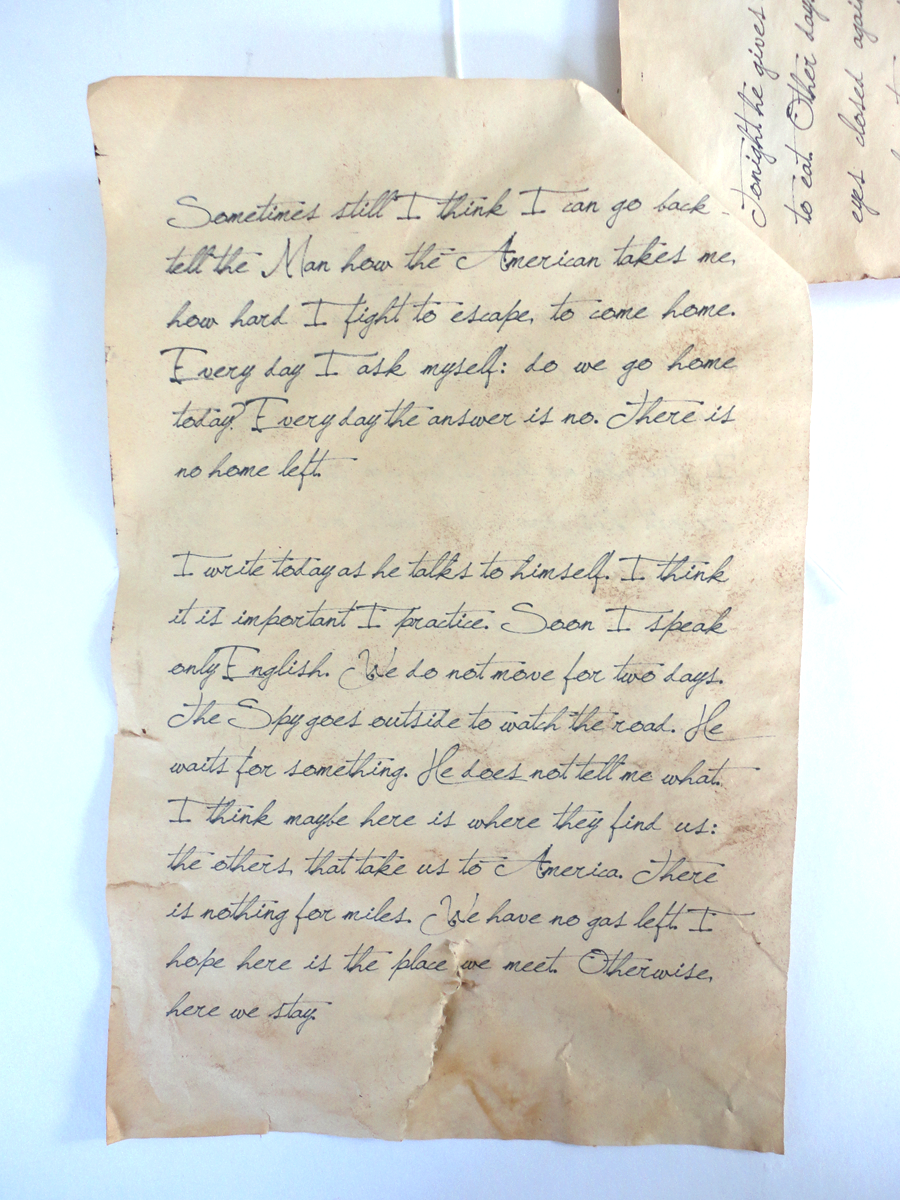 Sometimes still I think I can go back -
tell the Man how the American takes me,
how hard I fight to escape, to come home.
Every day I ask myself: do we go home
today? Every day the answer is no. There is
no home left.
I write today as he talks to himself. I think
it is important I practice. Soon I speak
only English. We do not move for two days.
The Spy goes outside to watch the road. He
waits for something. He does not tell me what.
I think maybe here is where they find us:
the others, that take us to America. There
is nothing for miles. We have no gas left. I
hope here is the place we meet. Otherwise,
here we stay.
Tonight he gives
to eat. Other day
eyes closed agai